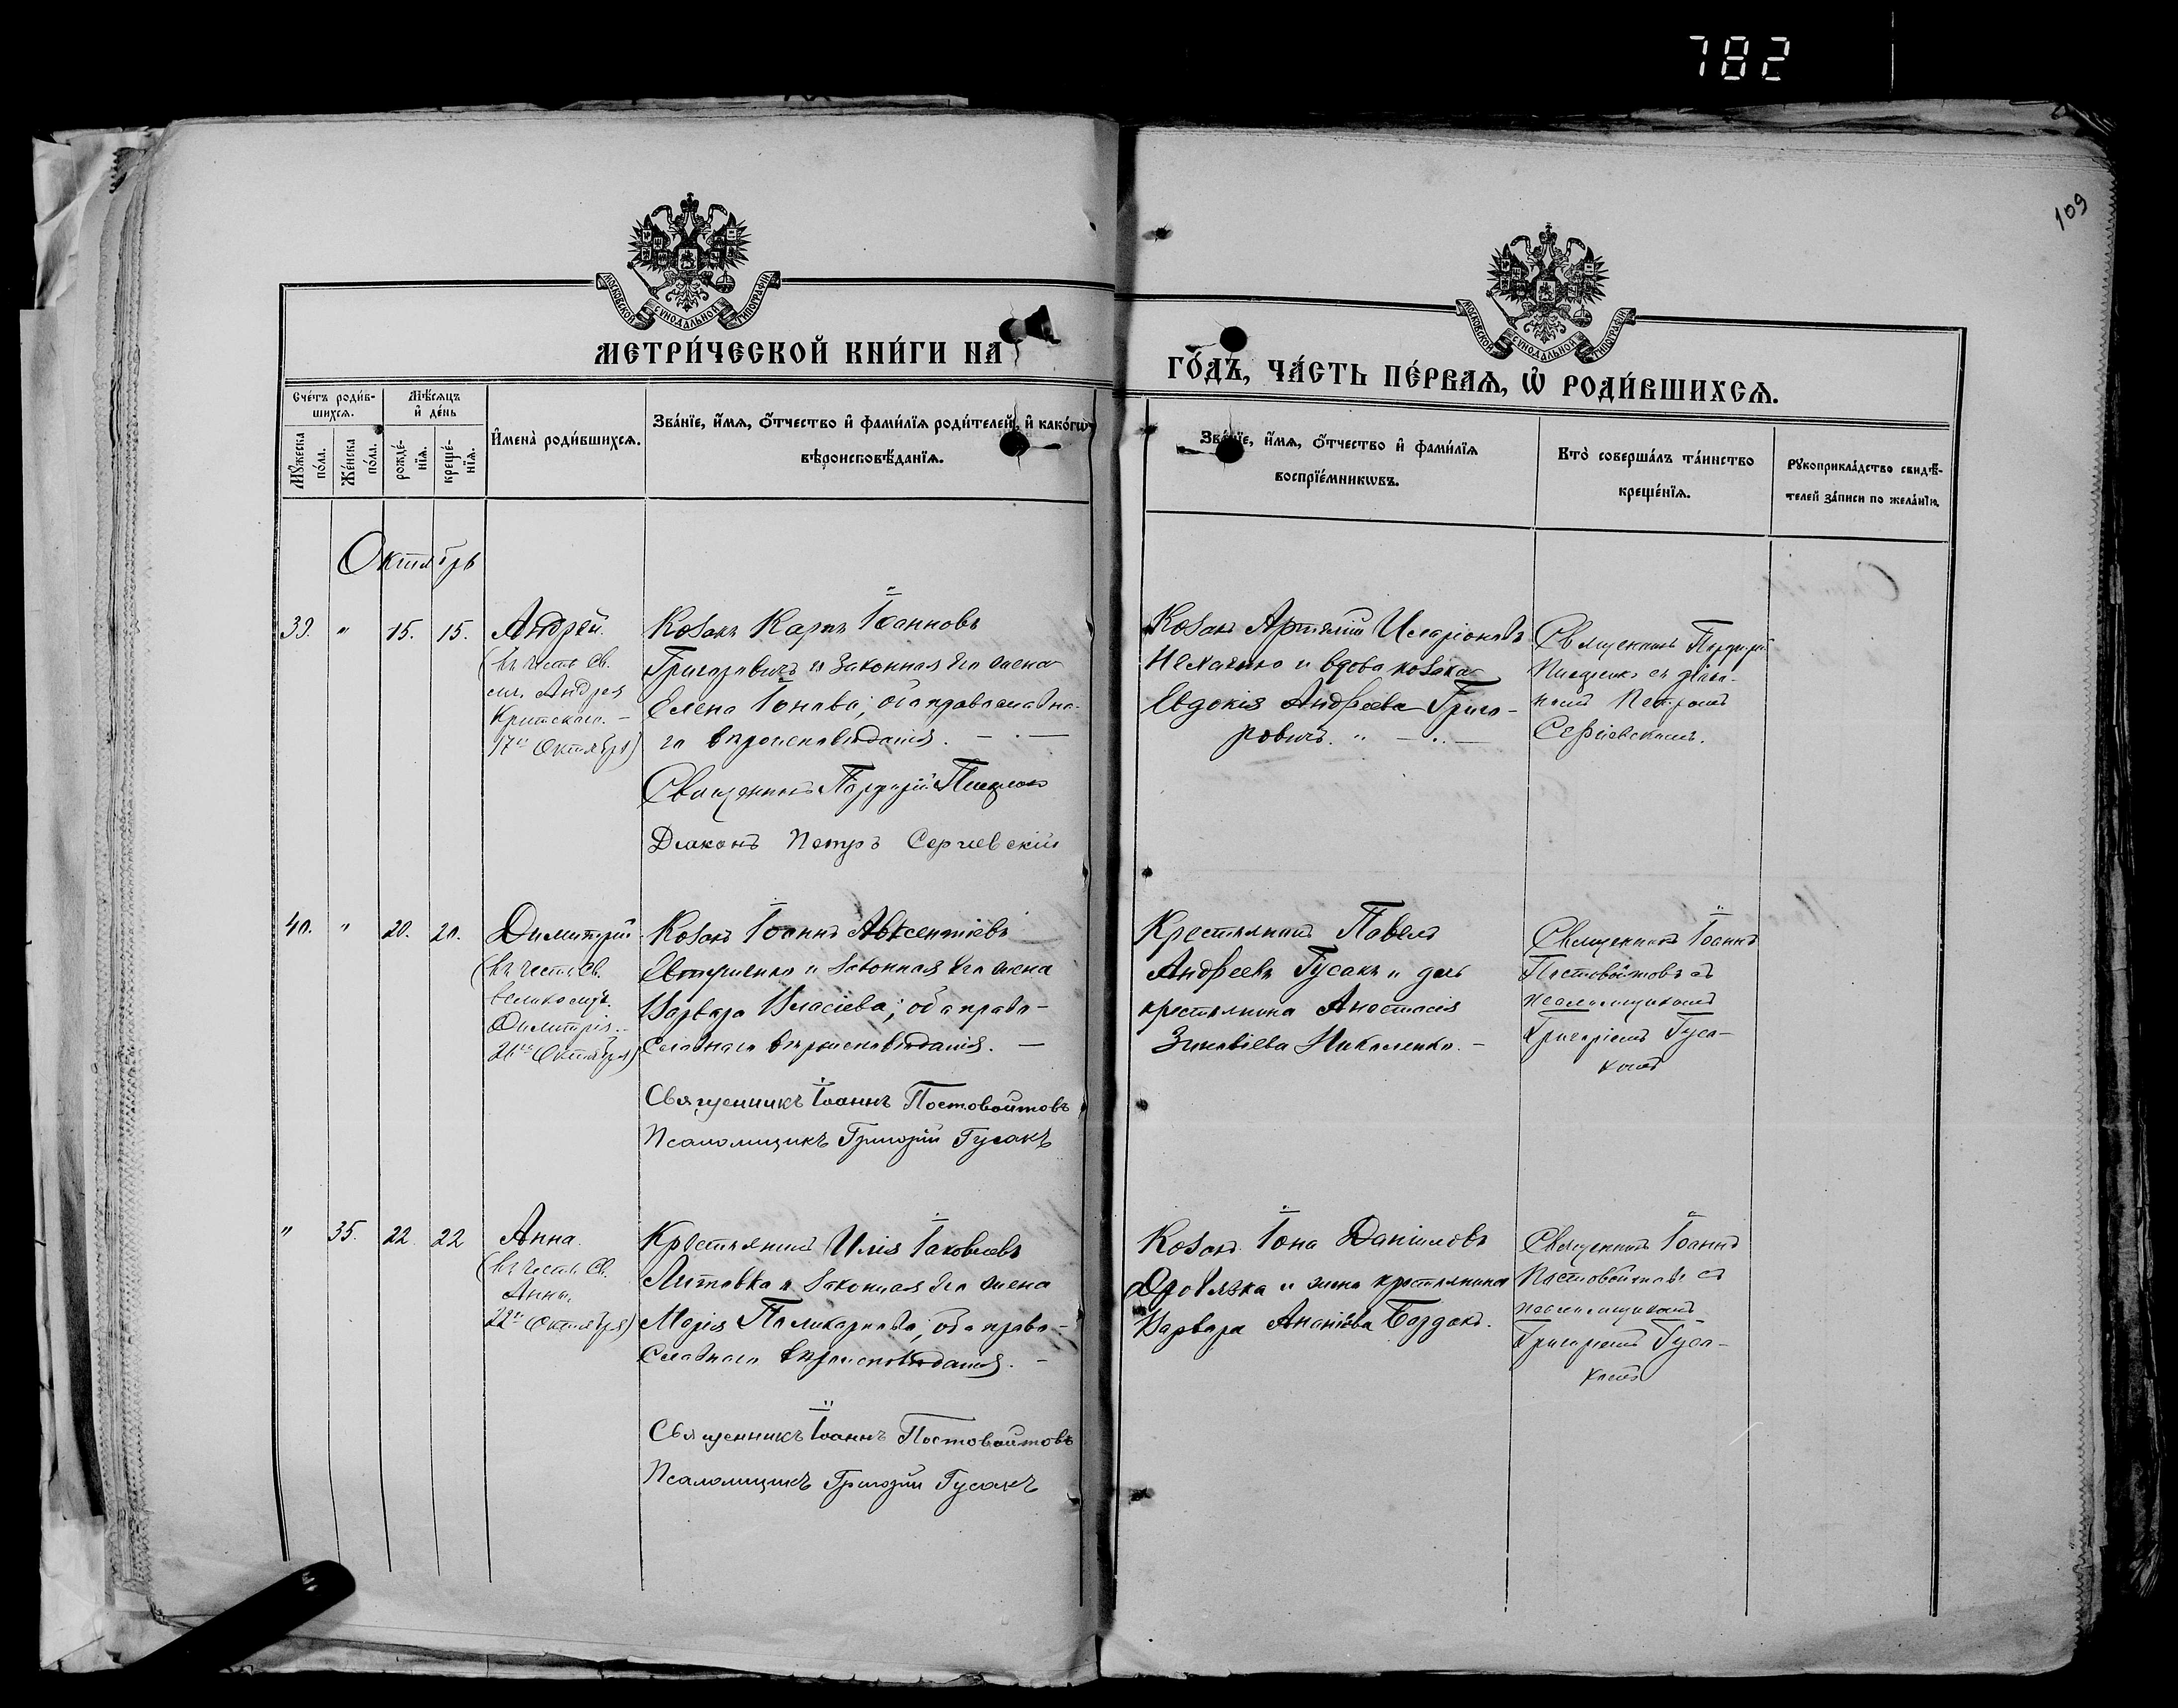 782
109
МОСКОВСКОЙ СУНОДАЛЬНОЙ ТИПОГРАФІИ
МОСКОВСКОЙ СУНОДАЛЬНОЙ ТИПОГРАФІИ
МЕТРИ́ЧЕСКОЙ КНИ́ГИ НА
ГО́ДЪ, ЧА́СТЬ ПЕ́РВАѦ, Ѡ҆ РОДИ́ВШИХСѦ.
Сче́тъ роди́в-
шихсѧ.
Мѣ́сѧцъ
и҆ де́нь
Мꙋ́жеска
по́ла.
Же́нска
по́ла.
рожде́-
нїѧ.
креще́-
нїѧ.
И҆мена̀ роди́вшихсѧ.
Зва́нїе, и҆́мѧ, ѻ҆́тчество и҆ фами́лїѧ роди́телей, и҆ како́гѡ
вѣроисповѣ́данїѧ.
Зва́нїе, и҆́мѧ, ѻ҆́тчество и҆ фами́лїѧ
воспрїе́мникѡвъ.
Кто̀ соверша́лъ та́инство
креще́нїѧ.
Рꙋкоприкла́дство свидѣ́-
телей за́писи по жела́нїю.
Октябрь
39. " 15. 15. Андрей.
(въ честь св.
Андрея
Критскаго. –
17го Октября)
Козакъ Карпъ Іоанновъ
Григоровичъ и законная его жена
Елена Іонова; оба православна-
го вѣроисповѣданія.
Священникъ Порфирій
Діаконъ Петръ Сергіевскій
Козакъ Артемій Иларіоновъ
и вдова козака
Евдокія Андреева Григо-
ровичъ.
Священникъ Порфирій
съ діако-
номъ Петромъ
Сергіевскимъ.
40. " 20. 20. Димитрій
(въ честь св.
великомуч.
Димитрія. –
26го Октября)
Козакъ Іоаннъ Авксентіевъ
и законная его жена
Варвара Власіева; оба право-
славнаго вѣроисповѣданія. –
Священникъ Іоаннъ Постовойтовъ
Псаломщикъ Григорій Гусакъ
Крестьянинъ Павелъ
Андреевъ Гусакъ и дочь
крестьянина Анастасія
Зиновіева Николенко. –
Священникъ Іоаннъ
Постовойтовъ съ
псаломщикомъ
Григоріемъ Гуса-
комъ
" 35. 22. 22 Анна.
(въ честь св.
Анны.
22го Октября)
Крестьянинъ Илія Іаковлевъ
Литовка и законная его жена
Марія Поликарпова; оба право-
славнаго вѣроисповѣданія. –
Священникъ Іоаннъ Постовойтовъ
Псаломщикъ Григорій Гусакъ
Козакъ Іона Даніиловъ
и жена крестьянина
Варвара Ананіева
Священникъ Іоаннъ
Постовойтовъ съ
псаломщикомъ
Григоріемъ Гуса-
комъ